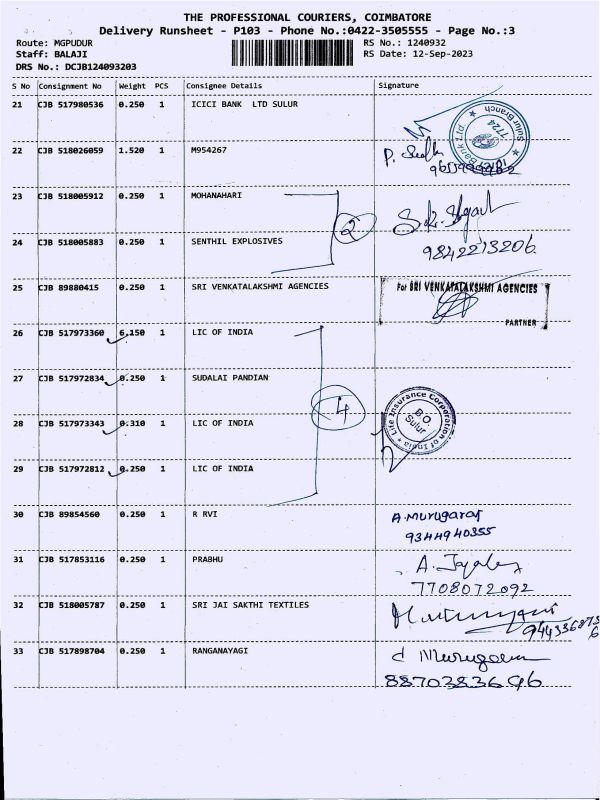 THE PROFESSIONAL COURIERS, COIMBATORE
Delivery Runsheet - P103 - Phone No.:0422-3505555 - Page No.:3
Route: MGPUDUR RS No.: 1240932
Staff: BALAJI RS Date: 12-Sep-2023
DRS No.: DCJB124093203
S No Consignment No Weight PCS Consignee Details Signature
21 CJB 517980536 0.250 1 ICICI BANK LTD SULUR
Sulur Branch
1724
22 CJB 518026059 1.520 1 M954267
23 CJB 518005912 0.250 1 MOHANAHARI
2
24 CJB 518005883 0.250 1 SENTHIL EXPLOSIVES
9842213206
25 CJB 89880415 0.250 1 SRI VENKATALAKSHMI AGENCIES For SRI VENKATALAKSHMI AGENCIES
PARTNER
26 CJB 517973360 6.150 1 LIC OF INDIA
27 CJB 517972834 0.250 1 SUDALAI PANDIAN
4
28 CJB 517973343 0.310 1 LIC OF INDIA
Life Insurance Corporation of India
B.O.
Sulur
29 CJB 517972812 0.250 1 LIC OF INDIA
30 CJB 89854560 0.250 1 R RVI A.Murugaraj
9344940355
31 CJB 517853116 0.250 1 PRABHU
7708072092
32 CJB 518005787 0.250 1 SRI JAI SAKTHI TEXTILES
33 CJB 517898704 0.250 1 RANGANAYAGI
8870383696